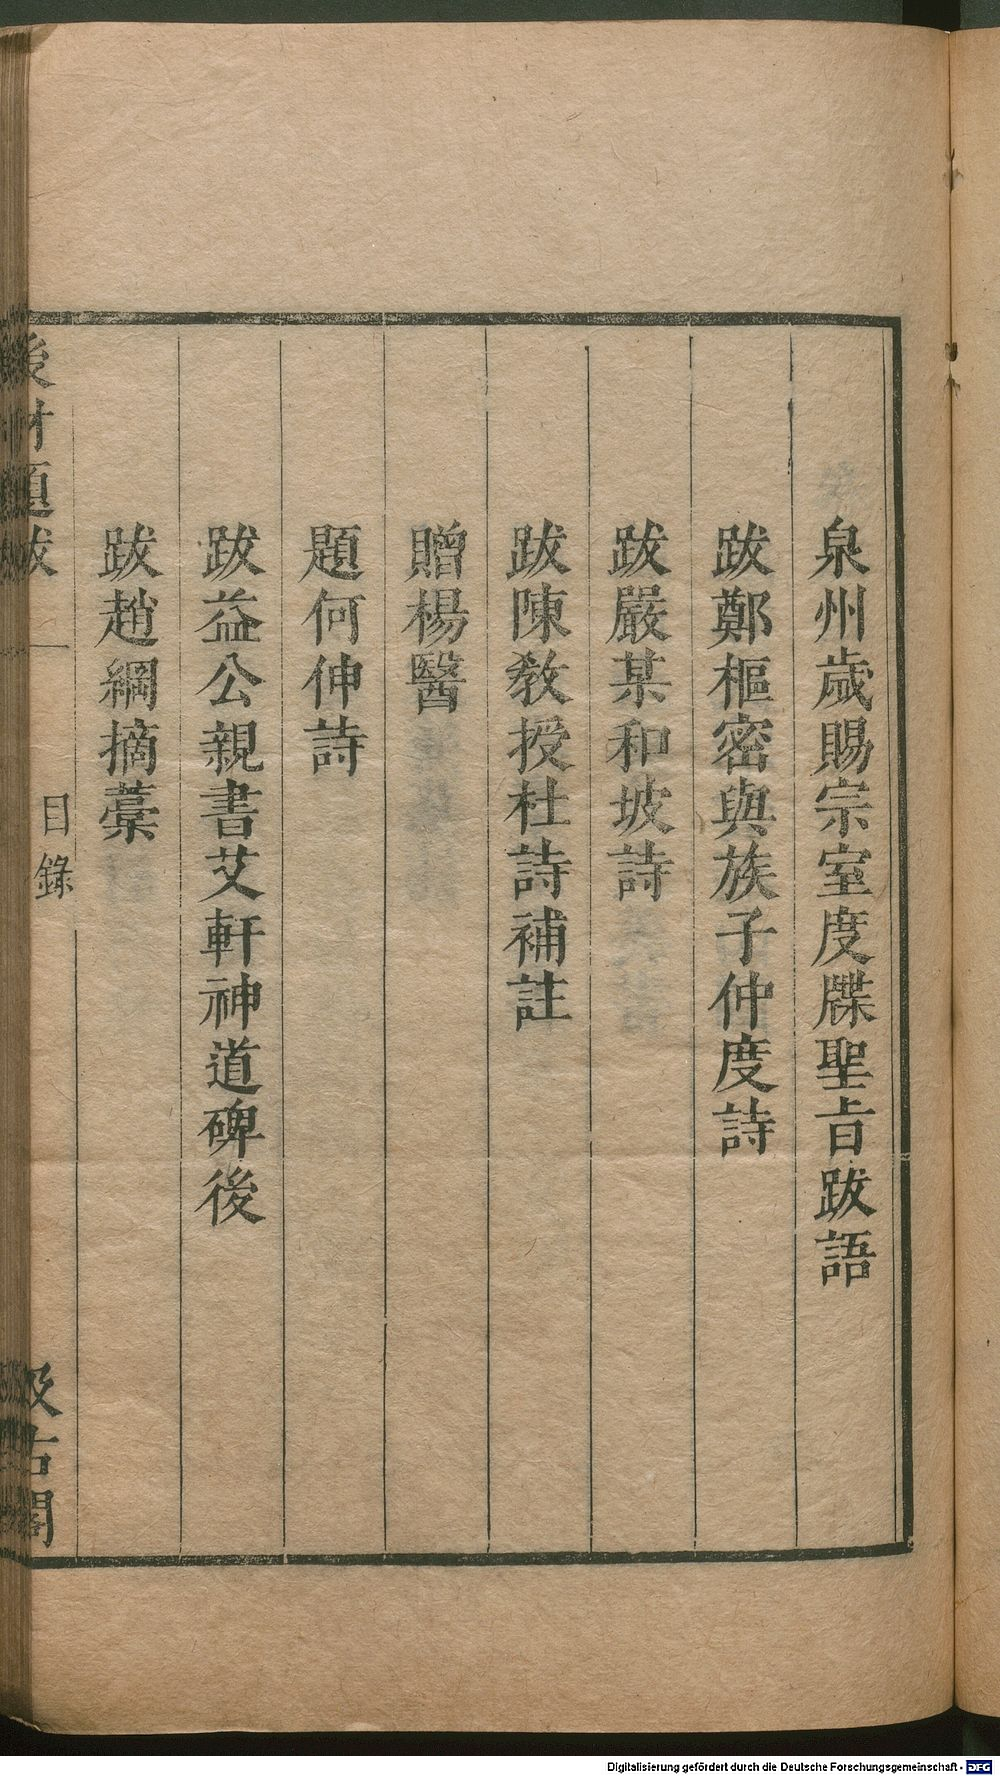 泉州歲賜宗室度牒聖旨跋語
跋鄭樞密與族子仲度詩
跋嚴某和坡詩
跋陳教授杜詩補註
贈楊醫
題何伸詩
跋益公親書艾軒神道碑後
跋趙綱摘藁
後村題跋
目錄
汲古閣
Digitalisierung gefördert durch die Deutsche Forschungsgemeinschaft - DFG